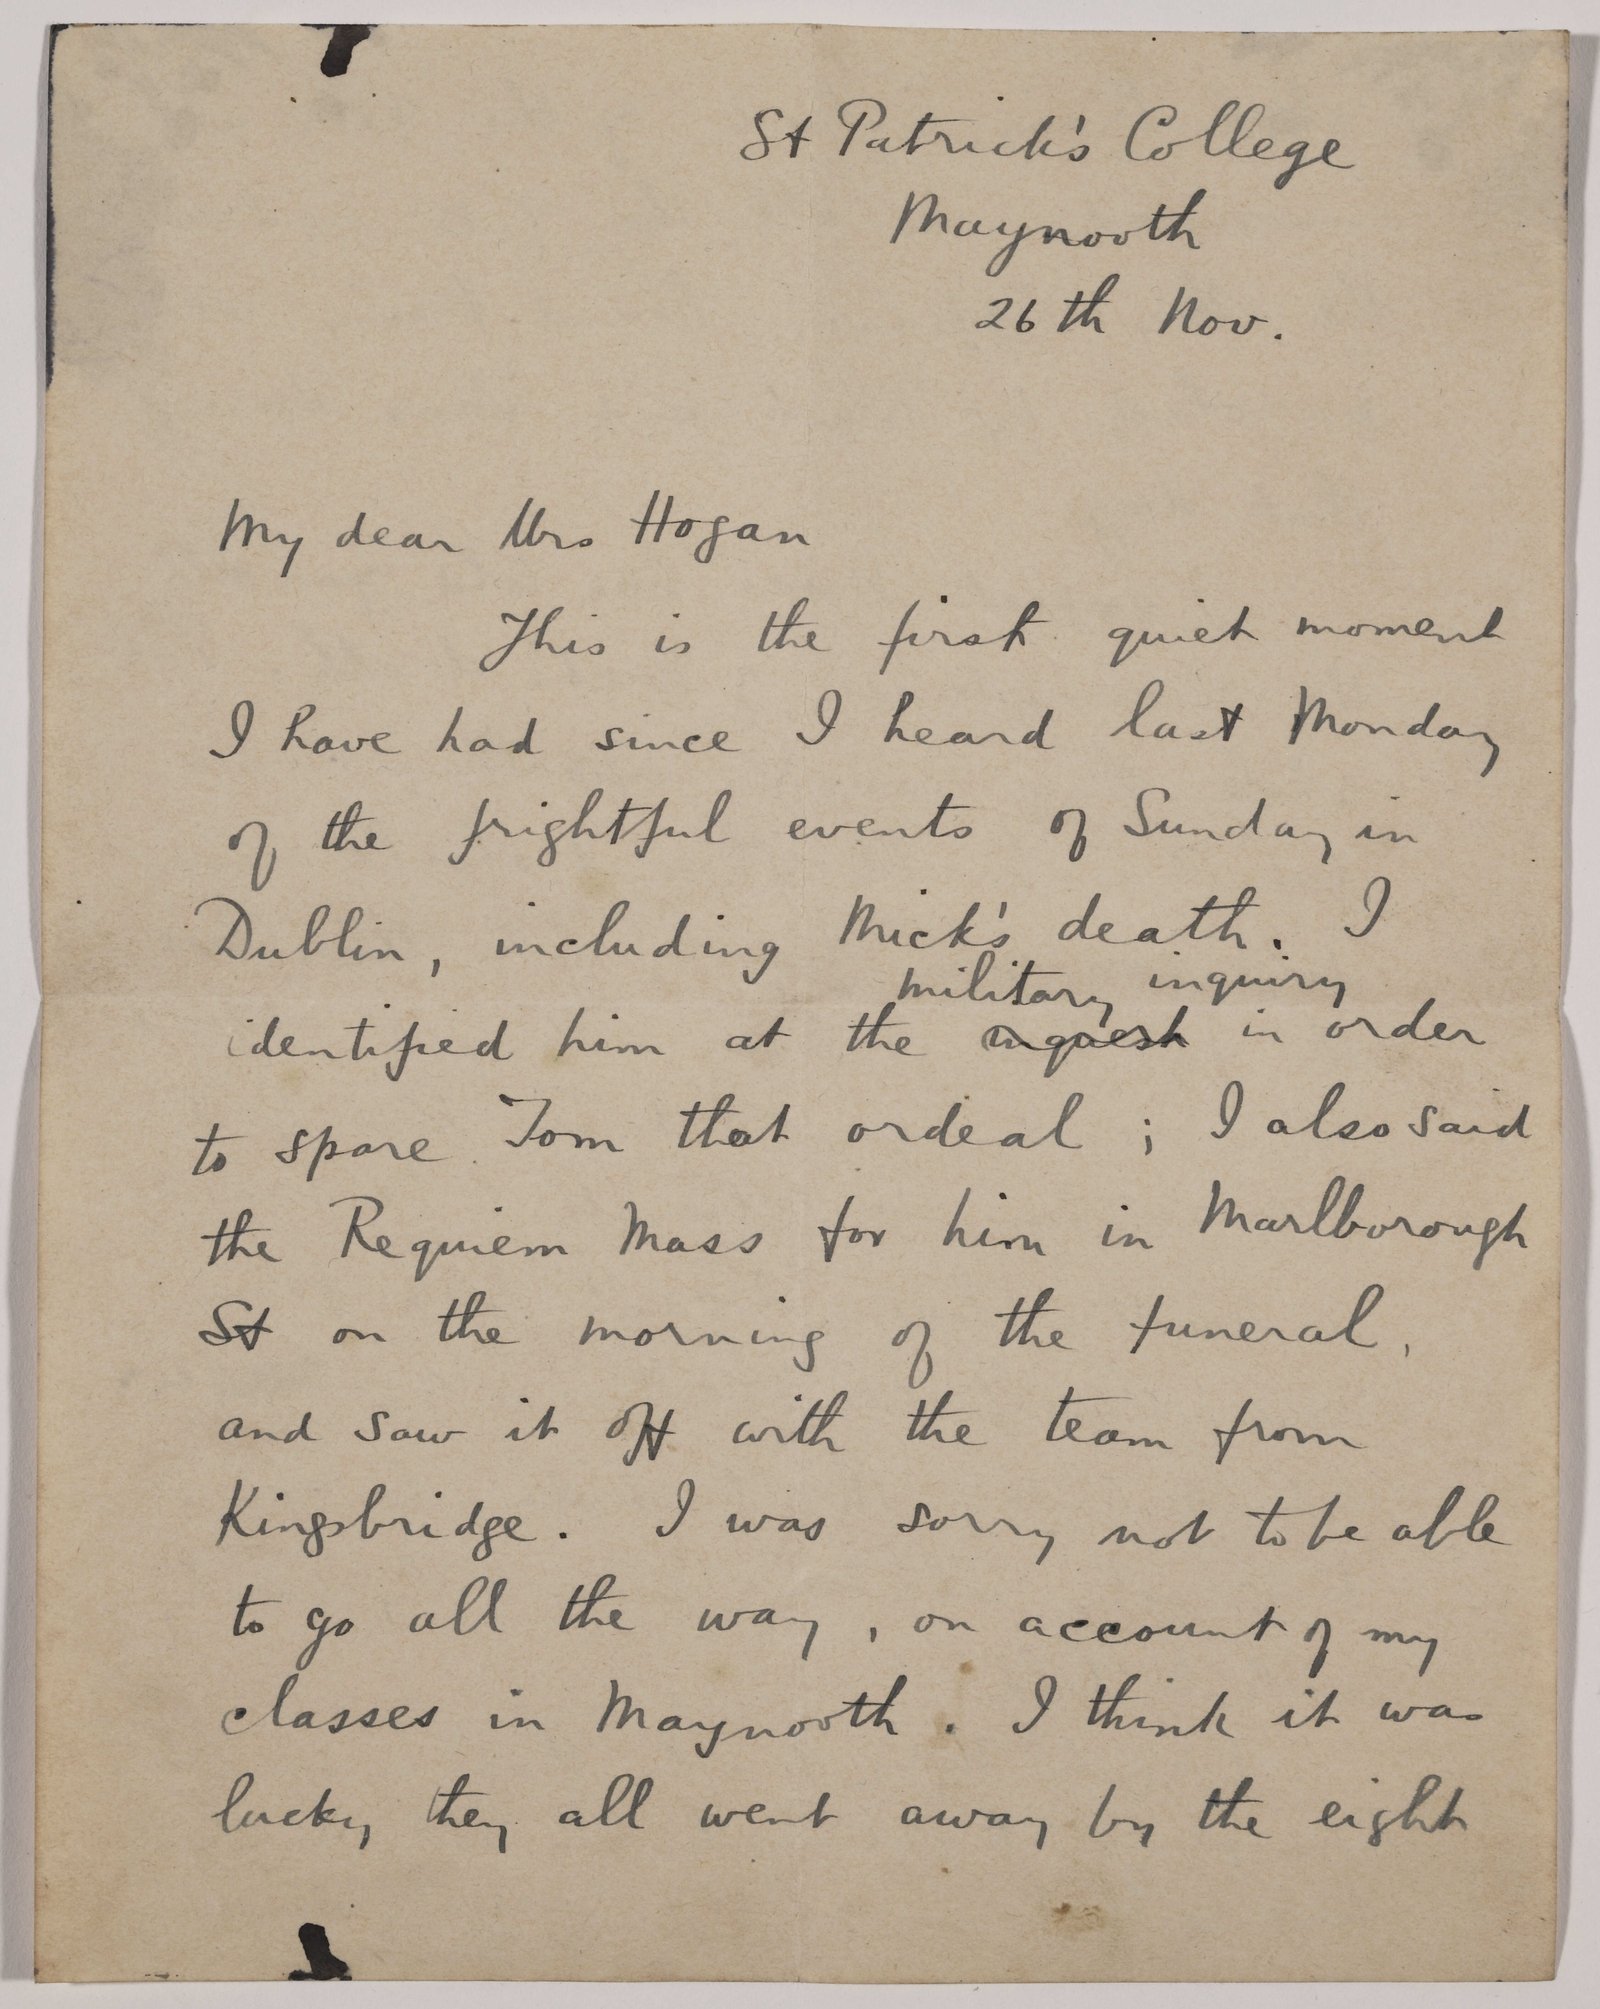 St Patrick's College
Maynooth
26th Nov.
My dear Mrs Hogan
This is the first quiet moment
I have had since I heard last Monday
of the frightful events of Sunday in
Dublin, including Mick's death. I
military inquiry
identified him at the inquest in order
to spare Tom that ordeal; I also said
the Requiem Mass for him in Marlborough
St on the morning of the funeral,
and saw it off with the team from
Kingsbridge. I was sorry not to be able
to go all the way, on account of my
classes in Maynooth. I think it was
lucky they all went away by the eight